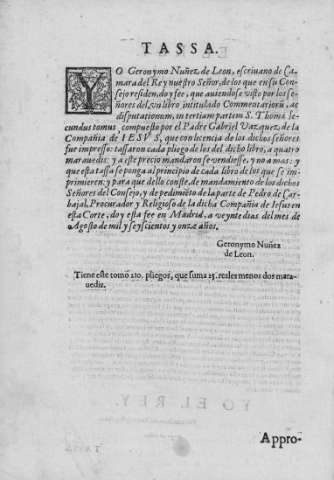 TASSA.
YO Geronymo Nuñez de Leon, escriuano de Ca-
mara del Rey nuestro Señor, de los que en su Con-
sejo residen, doy fee, que auiendose visto por los se-
ñores del, vn libro intitulado Commentariorũ, ac
disputationum, in tertiam partem S. Thomæ se-
cundus tomus compuesto por el Padre Gabriel Vazquez, de la
Compañia de IESVS, que con licencia de los dichos señores
fue impresso: tassaron cada pliego de los del dicho libro, a quatro
marauedis: y a este precio mandaron se vendiesse, y no a mas: y
que esta tassa se ponga al principio de cada libro de los que se im-
primieren: y para que dello conste, de mandamiento de los dichos
Señores del Consejo, y de pedimiẽto de la parte de Pedro de Car-
bajal, Procurador y Religioso de la dicha Compañia de Iesus en
esta Corte, doy esta fee en Madrid, a veynte dias del mes de
Agosto de mil y seyscientos y onze años.
Geronymo Nuñez
de Leon.
Tiene este tomo 210. pliegos, que suma 25. reales menos dos mara-
uedis.
YO EL REY.
Appro-